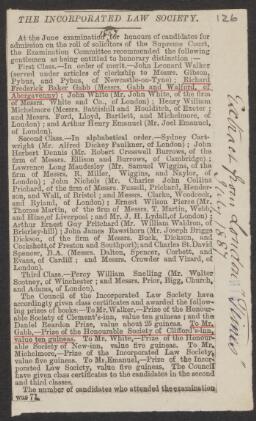 THE INCORPORATED LAW SOCIETY.
126
At the June examination for honours of candidates for
admission on the roll of solicitors of the Supreme Court,
the Examination Committee recommended the following
gentlemen as being entitled to honorary distinction :—
First Class.—In order of merit.—John Leonard Walker
(served under articles of clerkship to Messrs. Gibson,
Pybus, and Pybus, of Newcastle-on-Tyne) ; Richard
Frederick Baker Gabb (Messrs. Gabb and Walford, of
Abergavenny) ; John White (Mr. John White, of the firm
of Messrs. White and Co., of London) ; Henry William
Michelmore (Messrs. Battishill and Houlditch, of Exeter ;
and Messrs. Ford, Lloyd, Bartlett, and Michelmore, of
London) ; and Arthur Henry Emanuel (Mr. Joel Emanuel,
of London).
Second Class.—In alphabetical order.—Sydney Cart-
wright (Mr. Alfred Dickey Faulkner, of London) ; John
Herbert Deacon (Mr. Robert Creswell Burrows, of the
firm of Messrs. Ellison and Burrows, of Cambridge) ;
Lawrence Long Maudesley (Mr. Samuel Wiggins, of the
firm of Messrs. R. Miller, Wiggins, and Naylor, of
London) ; John Nichols (Mr. Charles John Collins
Prichard, of the firm of Messrs. Fussell, Prichard,
and Wall, of Bristol ; and Messrs. Clarke, Woodcock,
and Ryland, of London) ; Ernest Wilson Pierce (Mr.
Thomas Martin, of the firm of Messrs. T. Martin,
and Hime, of Liverpool ; and Mr. J. H. Lydall, of London) ;
Arthur Ernest Guy Pritchard (Mr. William Waldron, of
Brierley-hill) ; John James Rawsthorn (Mr. Joseph Briggs
Dickson, of the firm of Messrs. Buck, Dickson, and
Cockshott, of Preston and Southport) ; and Charles St. David
Spencer, B.A. (Messrs. Dalton, Spencer, Corbett, and
Evans, of Cardiff ; and Messrs. Crowder and Vizard, of
London).
Third Class.—Percy William Snelling (Mr. Walter
Sootney, of Winchester ; and Messrs. Prior, Bigg, Church,
and Adams, of London).
The Council of the Incorporated Law Society have
accordingly given class certificates and awarded the follow-
ing prizes of books :—To Mr. Walker,—Prize of the Honour-
able Society of Clement's-inn, value ten guineas ; and the
Daniel Reardon Prize, value about 25 guineas. To Mr.
Gabb,—Prize of the Honourable Society of Clifford's-inn,
value ten guineas. To Mr. White,—Prize of the Honour-
able Society of New-inn, value five guineas. To Mr.
Michelmore,—Prize of the Incorporated Law Society
value five guineas. To Mr. Emanuel,—Prize of the Incor-
porated Law Society, value five guineas. The Council
have given class certificates to the candidates in the second
and third classes.
The number of candidates who attended the examination
was 71.
Extract from London "Times"
July 1881